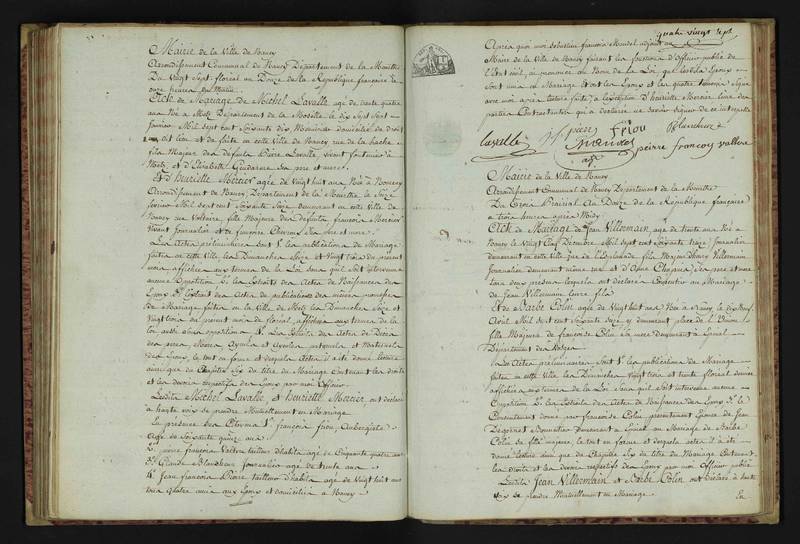 Mairie de la Ville de Nancy
Arrondissement Communal de Nancy Département de la Meurthe
Du Vingt Sept floréal an Douze de la République française à
onze heures du Matin
Acte de Mariage de Michel Lavallé agé de trente quatre
ans Né à Metz Département de la Moselle le dix Sept
Janvier Mil Sept cent Soixante dix domicilié de droit
et de fait en cette Ville de Nancy rue de la hache
fils Majeur des défunts Pierre Lavallé vivant
Metz et d'Elisabeth ses père et mère
Et d'henriette Mercier agée de Vingt huit ans Née à Nomeny
Arrondissement de Nancy Département de la Meurthe le Seize
Mil Sept cent Soixante Seize demeurant en cette Ville de
Nancy rue Voltaire, fille Majeure des défunts françois Mercier
Vivant Journalier et de françoise ses père et mere
Les Actes préliminaires sont 1° les publications de Mariage
faites en cette Ville les Dimanches Seize et Vingt trois du présent
mois affichées aux termes de la Loi sans qu'il soit intervenu
aucune Opposition 2° les Extraits des Actes de Naissances des
Epoux 3° l'extrait des Actes de publications des mêmes promesses
de Mariage faites en la Ville de Metz les Dimanches Seize et
Vingt trois du present mois de floréal, affichées aux termes de la
loi aussi sans opposition 4° les Extraits des Actes de Décès
des pères, Meres Ayeuls et Ayeules paternels et Maternels
des Epoux, le tout en forme et desquels Actes il a été donné lecture
ainsi que du Chapitre Six du titre du Mariage Contenant les droits
et les devoirs respectifs des Epoux par moi Officier
Lesdits Michel Lavallé et henriette Mercier ont déclaré
à haute voix se prendre Mutuellement en Mariage
En présence des Citoyens 1° françois friou, Aubergiste
agé de Soixante quinze ans
2° pierre françois Vallera tailleur d'habits agé de Cinquante quatre ans
3° Claude Blancheur Journalier agé de trente ans
4° Jean françois Pierre tailleur d'habits agé de Vingt huit ans
tous quatre amis aux Epoux et domiciliés à Nancy
quatre vingt sept
Après quoi moi Sebastien françois Mandel adjoint au
Maire de la Ville de Nancy faisant les fonctions d'Officier public de
l'Etat civil, ai prononcé au Nom de la Loi que lesdits Epoux
sont unis en Mariage et ont les Epoux et les quatre témoins Signé
avec moi après lecture faite, à l'exception d'henriette Mercier l'une des
parties Contractantes qui a déclaré ne Savoir signer de ce interpellée
Lavallé
pierre
friou
Blancheur
Mandel
adjt
peirre francoy vallera
Mairie de la Ville de Nancy
Arrondissement Communal de Nancy Département de la Meurthe
Du Trois Prairial An Douze de la République française
à trois heures après Midy
Acte de Mariage de Jean Villermain agé de trente ans Né à
Nancy le Vingt Cinq Décembre Mil Sept cent Soixante treize Journalier
demeurant en cette Ville rue de l'Esplanade fils Majeur d'henry Villermain
Journalier demeurant même rue et d'Anne Chopard ses père et mere
tous deux présens lesquels ont déclaré Consentir au Mariage
de Jean Villermain leur fils
Et de Barbe Colin agée de Vingt huit ans Née à Nancy le dix Neuf
Avril Mil Sept cent Soixante Seize y demeurant place de l'Union
fille Majeure de françoise Colin sa mere demeurant à Epinal
Département des Vosges
Les Actes préliminaires sont 1° les publications de Mariage
faites en cette Ville les Dimanches Vingt trois et trente floréal dernier
affichées aux termes de la Loi Sans qu'il soit intervenu aucune
Opposition 2° les Extraits des Actes de Naissances des Epoux 3° le
Consentement donné par françoise Colin présentement Epouse de Jean
demeurant à Epinal au Mariage de Barbe
Colin sa fille majeure le tout en forme et desquels actes il a été
donné lecture ainsi que du Chapitre Six du titre du Mariage Contenant
les droits et les devoirs respectifs des Epoux par moi Officier public
Lesdits Jean Villermain et Barbe Colin ont déclaré à haute
voix se prendre Mutuellement en Mariage
En